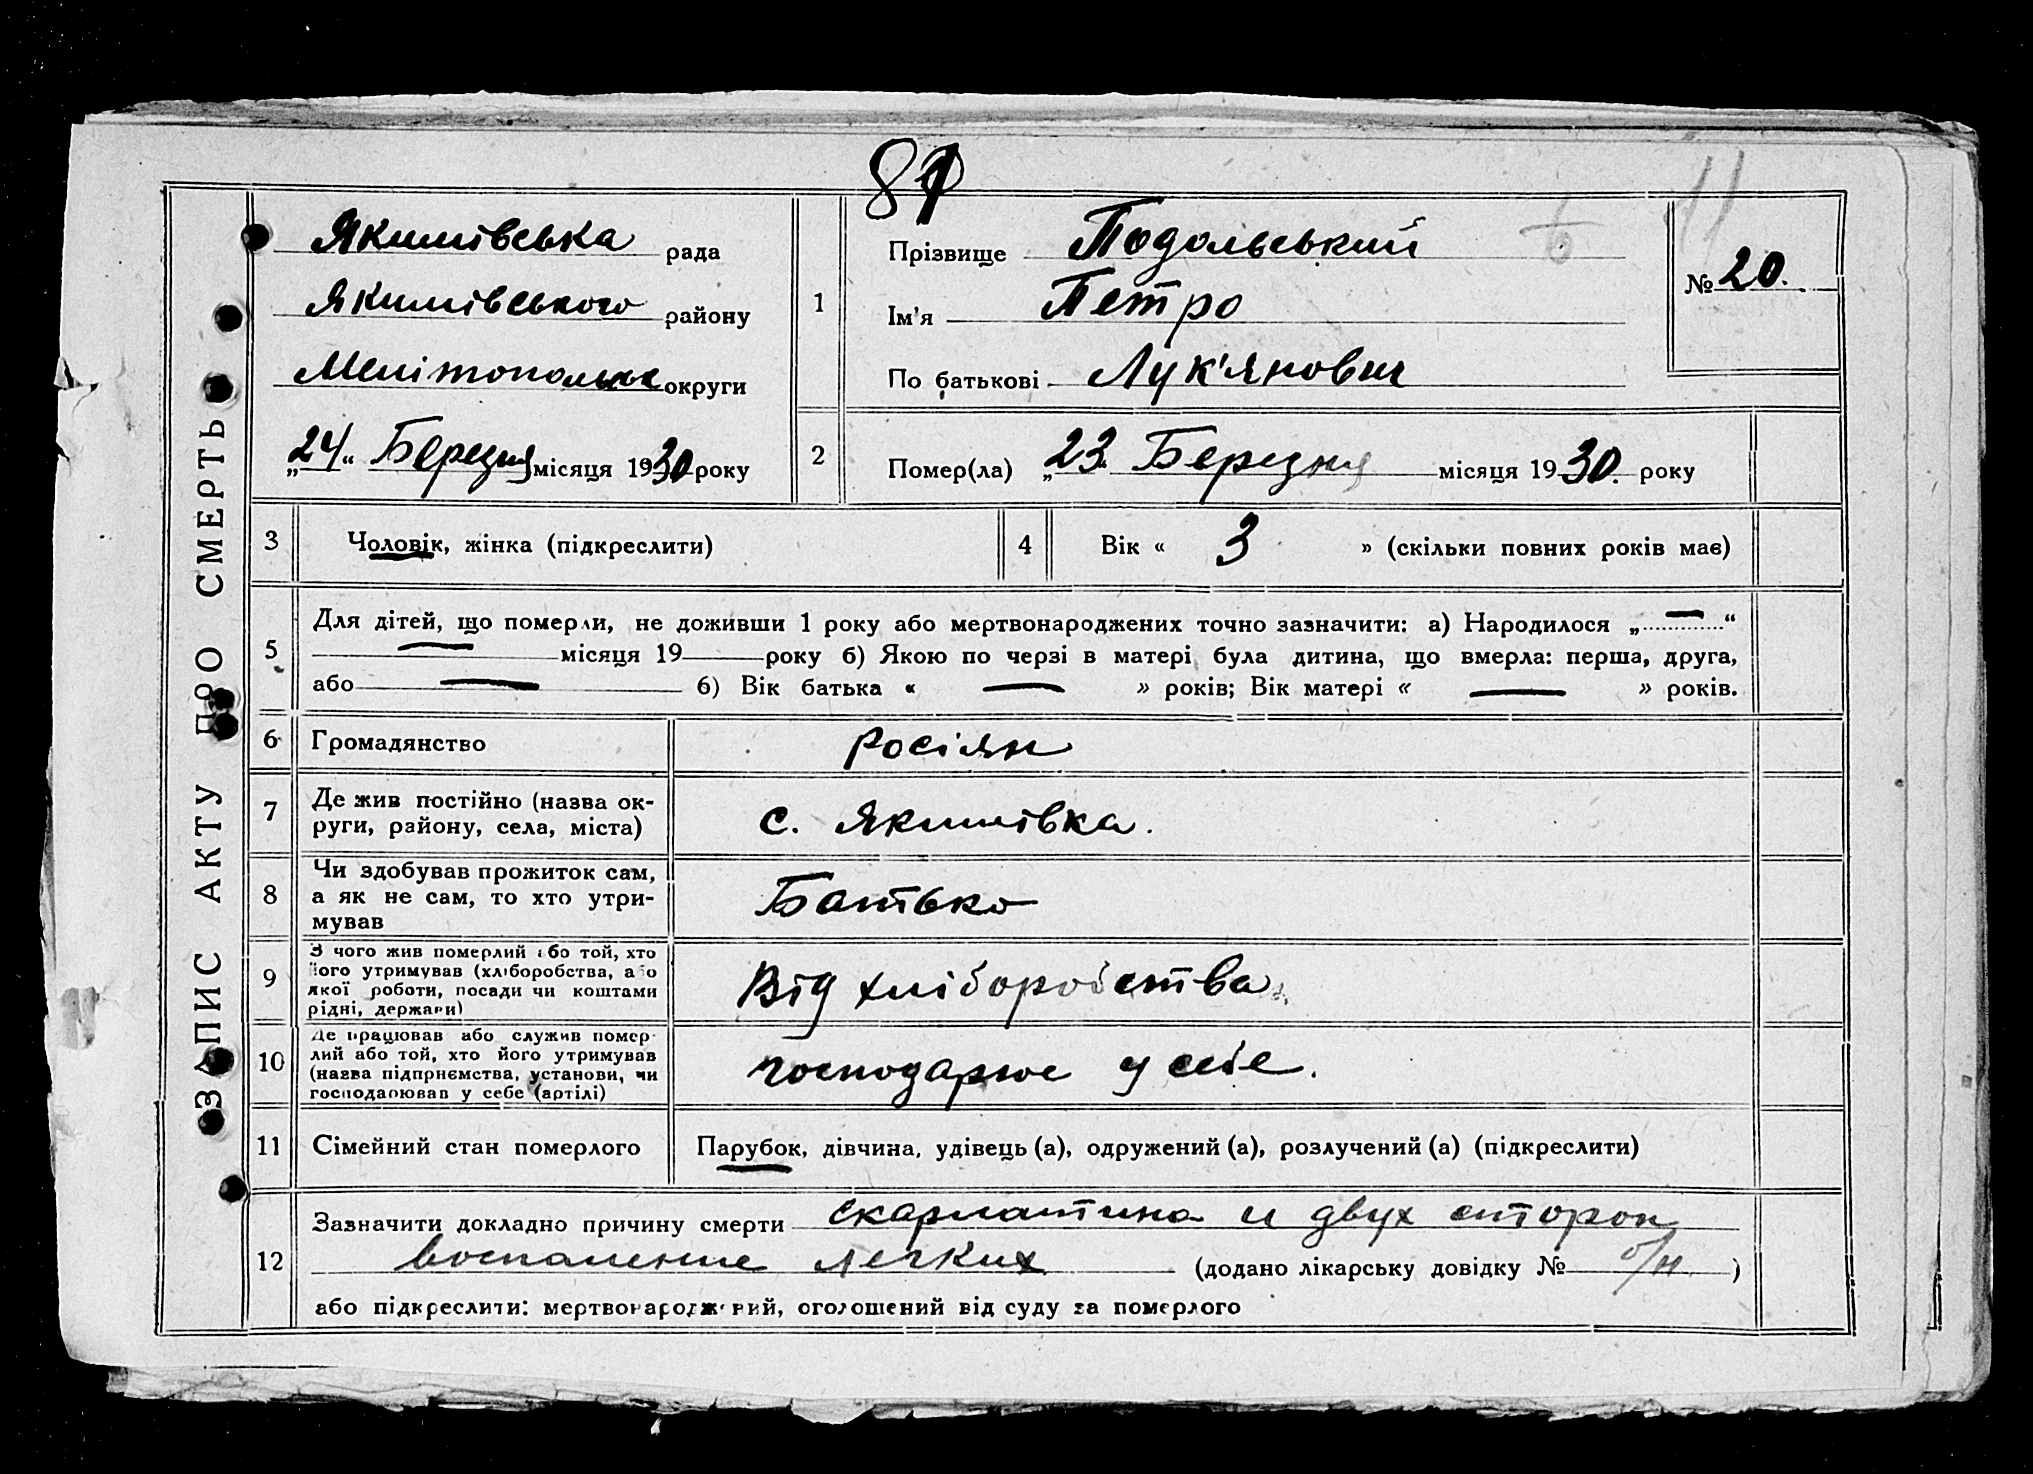 11
ЗАПИС АКТУ ПРО СМЕРТЬ
Якимівська рада
Якимівського району
Мелітопольськ округи
„24“ Березня місяця 1930 року
1
Прізвище Подольський
Ім’я Петро
По батькові Лук'янович
№ 20.
2
Помер(ла) „23“ Березня місяця 1930. року
3
Чоловік, жінка (підкреслити)
4
Вік « 3 » (скільки повних років має)
5
Для дітей, що померли, не доживши 1 року або мертвонароджених точно зазначити: а) Народилося „—“
— місяця 19 року б) Якою по черзі в матері була дитина, що вмерла: перша, друга,
або — б) Вік батька « — » років; Вік матері « — » років.
6
Громадянство
росіян
7
Де жив постійно (назва ок-
руги, району, села, міста)
с. Якимівка.
8
Чи здобував прожиток сам,
а як не сам, то хто утри-
мував
Батько
9
З чого жив померлий або той, хто
його утримував (хліборобства, або
якої роботи, посади чи коштами
рідні, держави)
Від хліборобства.
10
Де працював або служив помер-
лий або той, хто його утримував
(назва підприємства, установи, чи
господарював у себе (артілі)
господарює у себе.
11
Сімейний стан померлого
Парубок, дівчина, удівець (а), одружений (а), розлучений (а) (підкреслити)
12
Зазначити докладно причину смерти скарлатина и двух сторон
воспаление легких (додано лікарську довідку № б/н )
або підкреслити: мертвонароджений, оголошений від суду за померлого